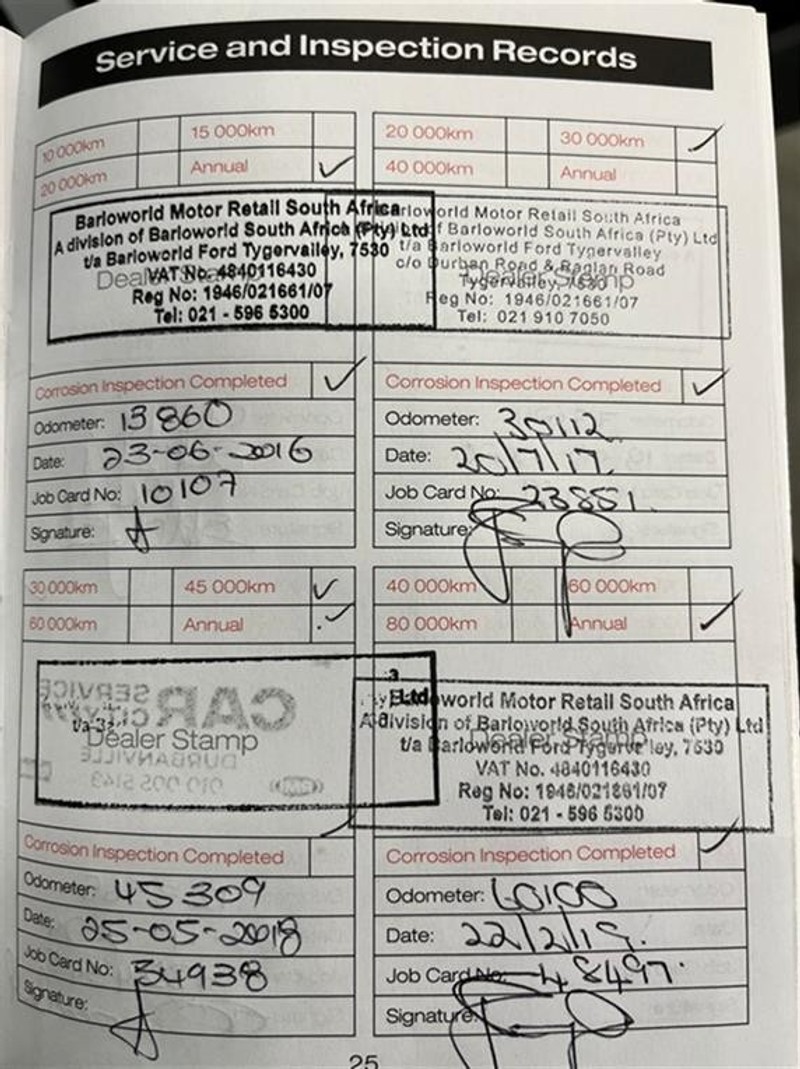 Service and Inspection Records
10 000km 15 000km
20 000km Annual ✓
Barloworld Motor Retail South Africa
A division of Barloworld South Africa (Pty) Ltd
t/a Barloworld Ford Tygervalley, 7530
VAT No. 4840116430
Reg No: 1946/021661/07
Tel: 021 - 596 5300
Dealer Stamp
Corrosion Inspection Completed ✓
Odometer: 13860
Date: 23-06-2016
Job Card No: 10107
Signature:
20 000km 30 000km ✓
40 000km Annual
arloworld Motor Retail South Africa
f Barloworld South Africa (Pty) Ltd
t/a Barloworld Ford Tygervalley
c/o Durban Road & Raglan Road
Tygervalley, 7530
Reg No: 1946/021661/07
Tel: 021 910 7050
Dealer Stamp
Corrosion Inspection Completed ✓
Odometer: 30112
Date: 20/7/17.
Job Card No: 23851.
Signature:
30 000km 45 000km ✓
60 000km Annual ✓
CAR SERVICE
CITY
DURBANVILLE
010 005 5149
Dealer Stamp
Corrosion Inspection Completed
Odometer: 45309
Date: 25-05-2018
Job Card No: 34938
Signature:
40 000km 60 000km
80 000km Annual ✓
Ltd
world Motor Retail South Africa
A division of Barloworld South Africa (Pty) Ltd
t/a Barloworld Ford Tygervalley, 7530
VAT No. 4840116430
Reg No: 1946/021661/07
Tel: 021 - 596 5300
Dealer Stamp
Corrosion Inspection Completed ✓
Odometer: 60100
Date: 22/2/19.
Job Card No: 48497.
Signature:
25